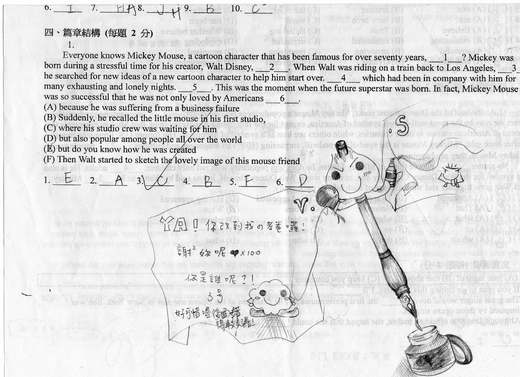 6. I 7. HA 8. JH 9. B 10. C
四、篇章結構 (每題 2 分)
1.
Everyone knows Mickey Mouse, a cartoon character that has been famous for over seventy years, ___1___? Mickey was
born during a stressful time for his creator, Walt Disney, ___2___. When Walt was riding on a train back to Los Angeles, ___3
he searched for new ideas of a new cartoon character to help him start over. ___4___ which had been in company with him for
many exhausting and lonely nights. ___5___. This was the moment when the future superstar was born. In fact, Mickey Mouse
was so successful that he was not only loved by Americans ___6___.
(A) because he was suffering from a business failure
(B) Suddenly, he recalled the little mouse in his first studio,
(C) where his studio crew was waiting for him
(D) but also popular among people all over the world
(E) but do you know how he was created
(F) Then Walt started to sketch the lovely image of this mouse friend
1. E 2. A 3. C 4. B 5. F 6. D
.S
V.
你改到我の考卷囉!
謝謝妳呢 ♥×100
你是誰呢?!
3号